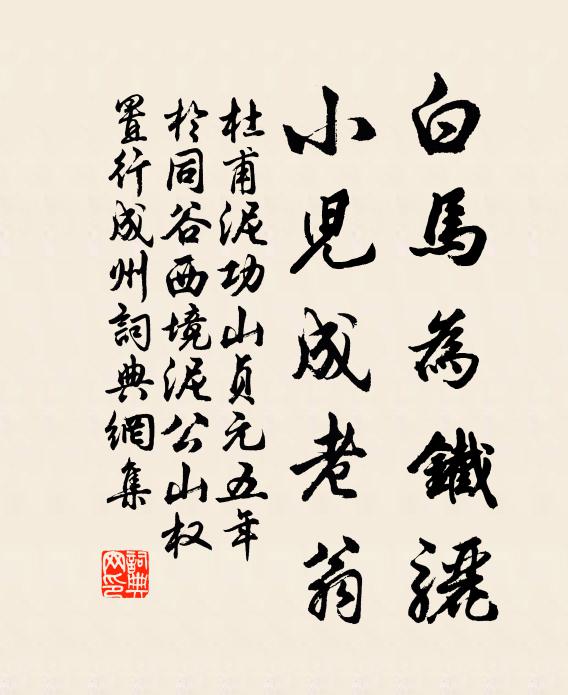 白馬為鐵驪
小兒成老翁
杜甫泥功山貞元五年
於同谷西境泥公山权
置行成州詞典網集
詞典
网印